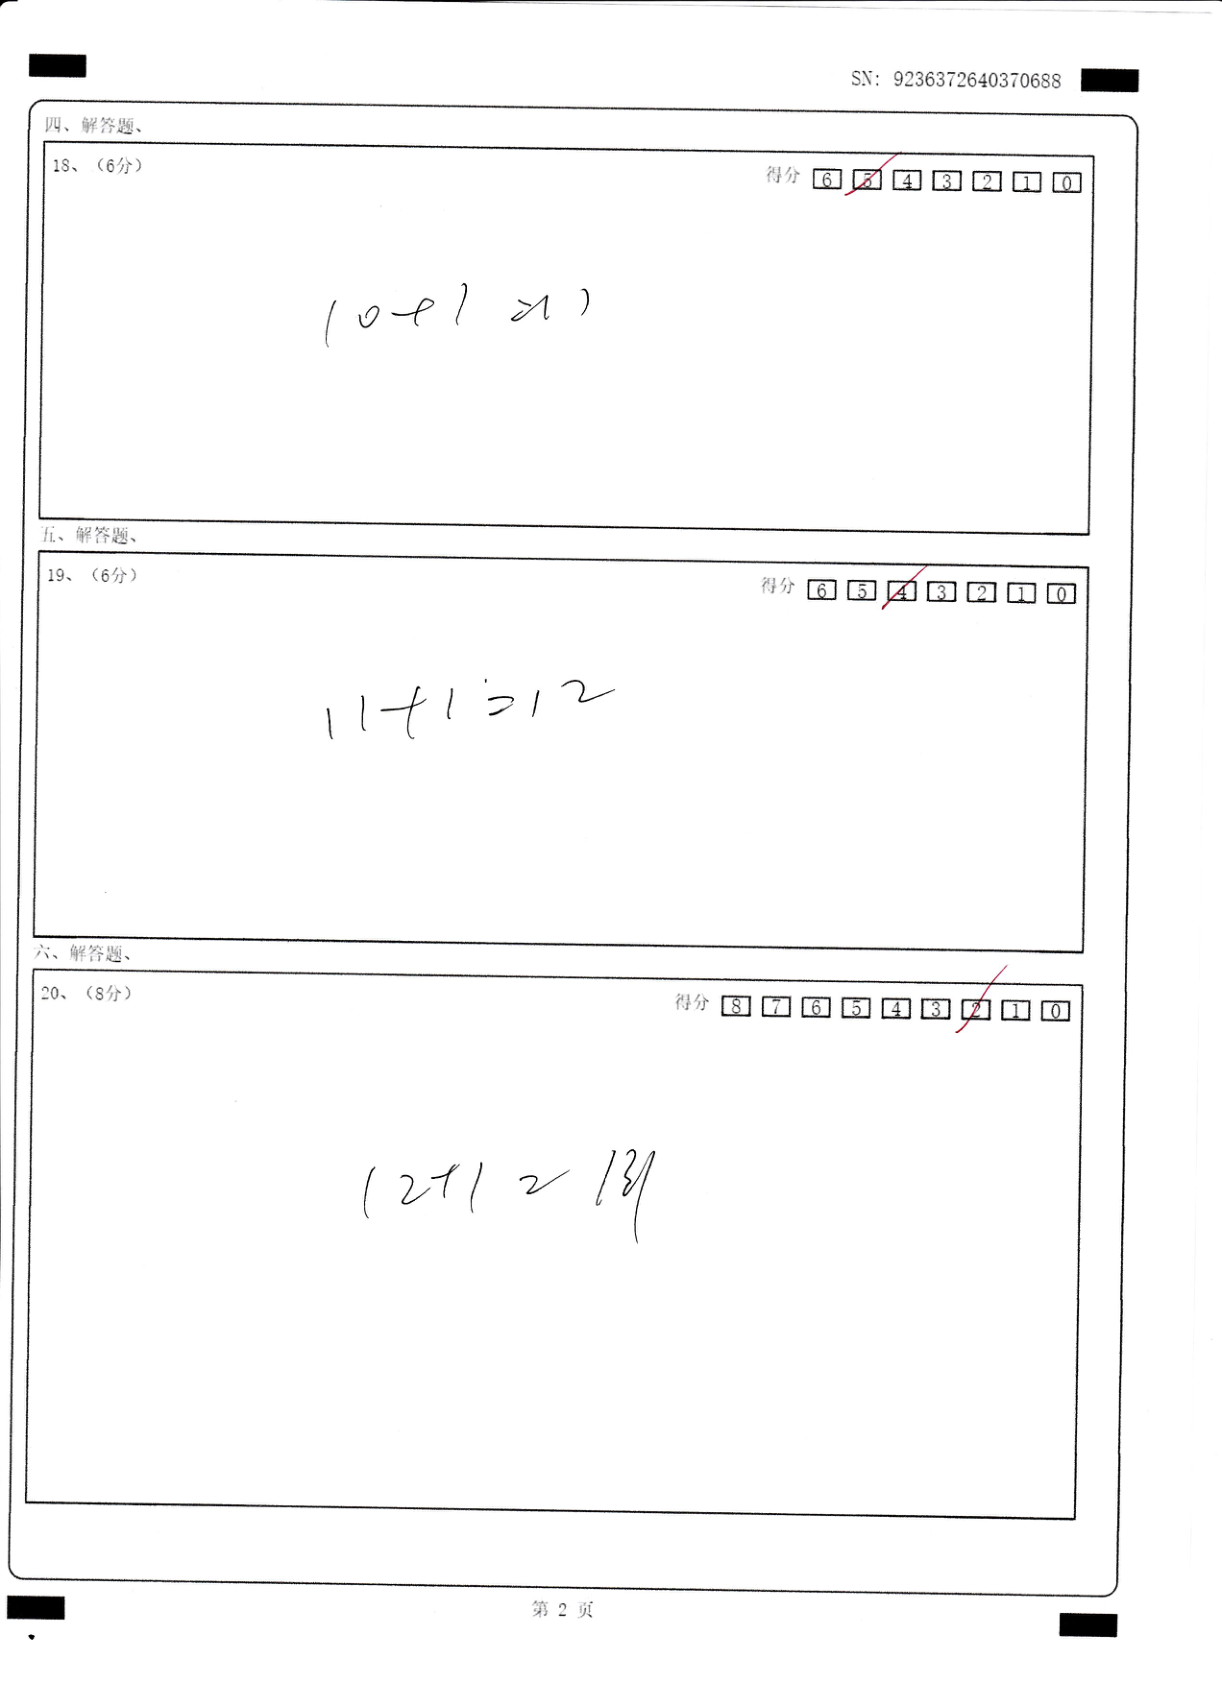 SN: 9236372640370688
四、解答题、
18、（6分）
得分 6 5 4 3 2 1 0
10+1=11
五、解答题、
19、（6分）
得分 6 5 4 3 2 1 0
11+1=12
六、解答题、
20、（8分）
得分 8 7 6 5 4 3 2 1 0
12+1=
第 2 页